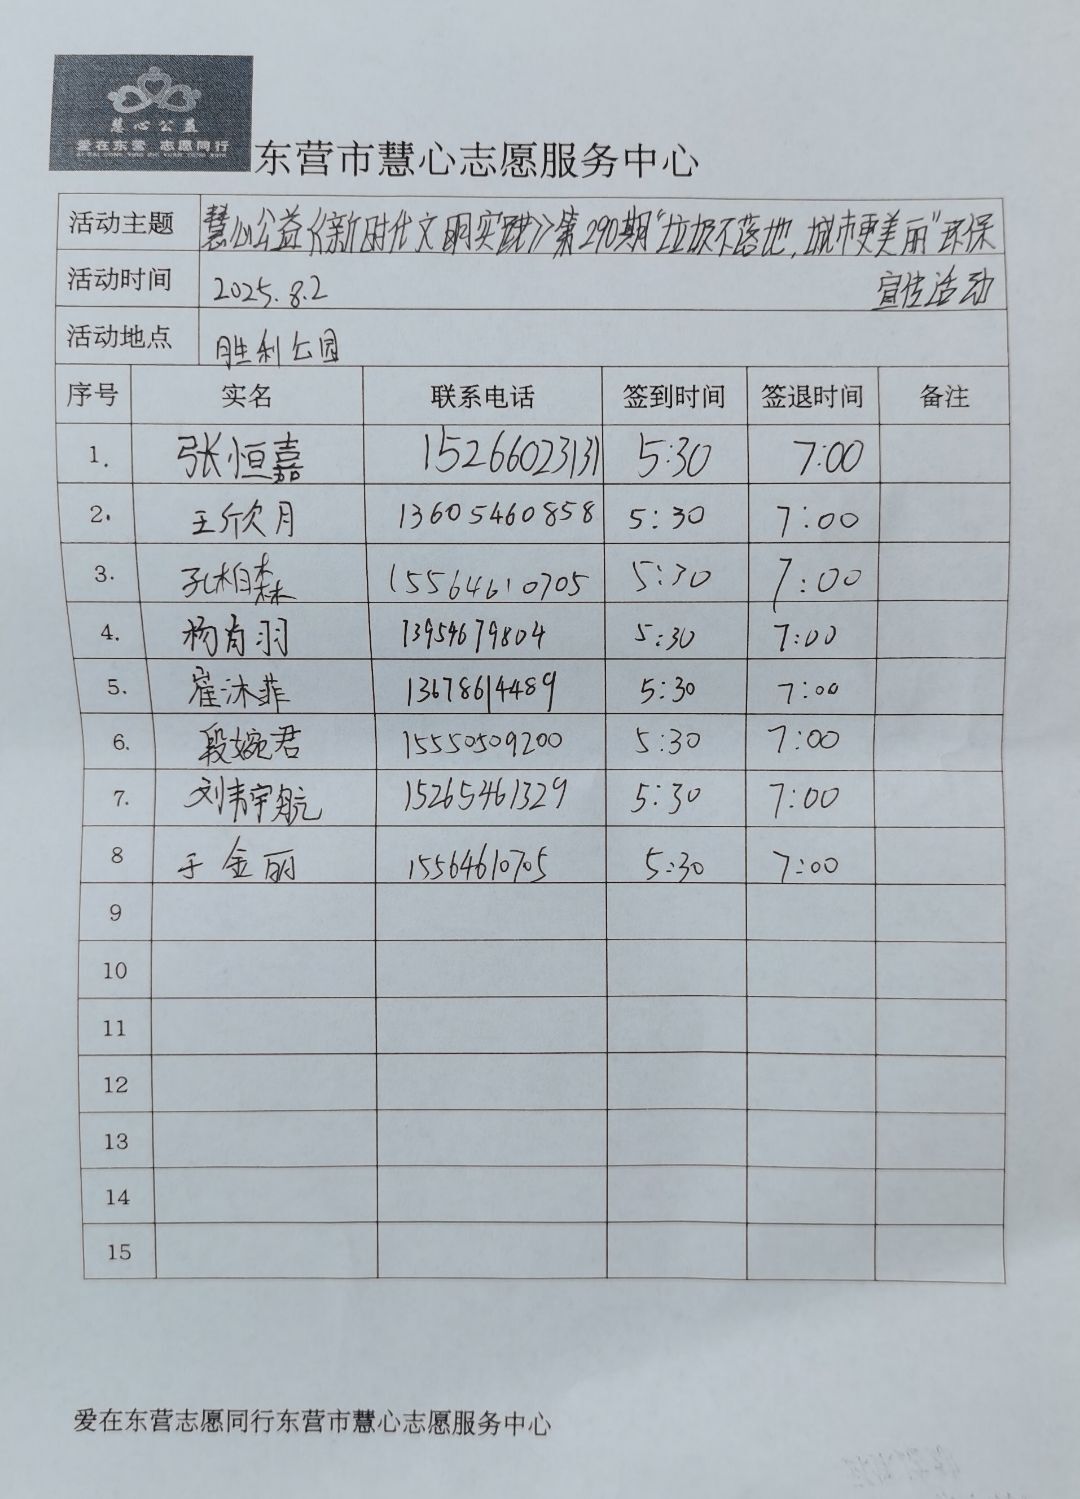 慧心公益
爱在东营 志愿同行
东营市慧心志愿服务中心
活动主题 慧心公益《新时代文明实践》第290期“垃圾不落地,城市更美丽”环保
活动时间 2025.8.2 宣传活动
活动地点 胜利公园
序号 实名 联系电话 签到时间 签退时间 备注
1. 张恒嘉 15266023131 5:30 7:00
2. 王欣月 13605460858 5:30 7:00
3. 孔柏森 15564610705 5:30 7:00
4. 杨肖羽 13954679804 5:30 7:00
5. 崔沐菲 13678614489 5:30 7:00
6. 段婉君 15550509200 5:30 7:00
7. 刘韦宇航 15265461329 5:30 7:00
8 于金丽 15564610705 5:30 7:00
9
10
11
12
13
14
15
爱在东营志愿同行东营市慧心志愿服务中心